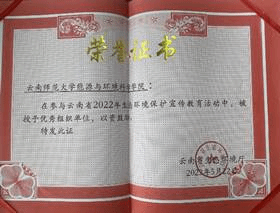 荣誉证书
云南师范大学能源与环境科学学院：
在参与云南省2022年生态环境保护宣传教育活动中，被
授予优秀组织单位，以资鼓励
特发此证
云南省生态环境厅